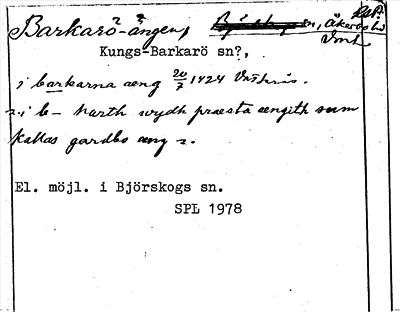 Barkarö-ängen, sn, Åkerbo hd
Vml
Kungs-Barkarö sn?,
i barkarna æng 20/7 1424
2. i b— harth wydh præsta ængith sum
kallas gardbo æng 2.
El. möjl. i Björskogs sn.
SPL 1978